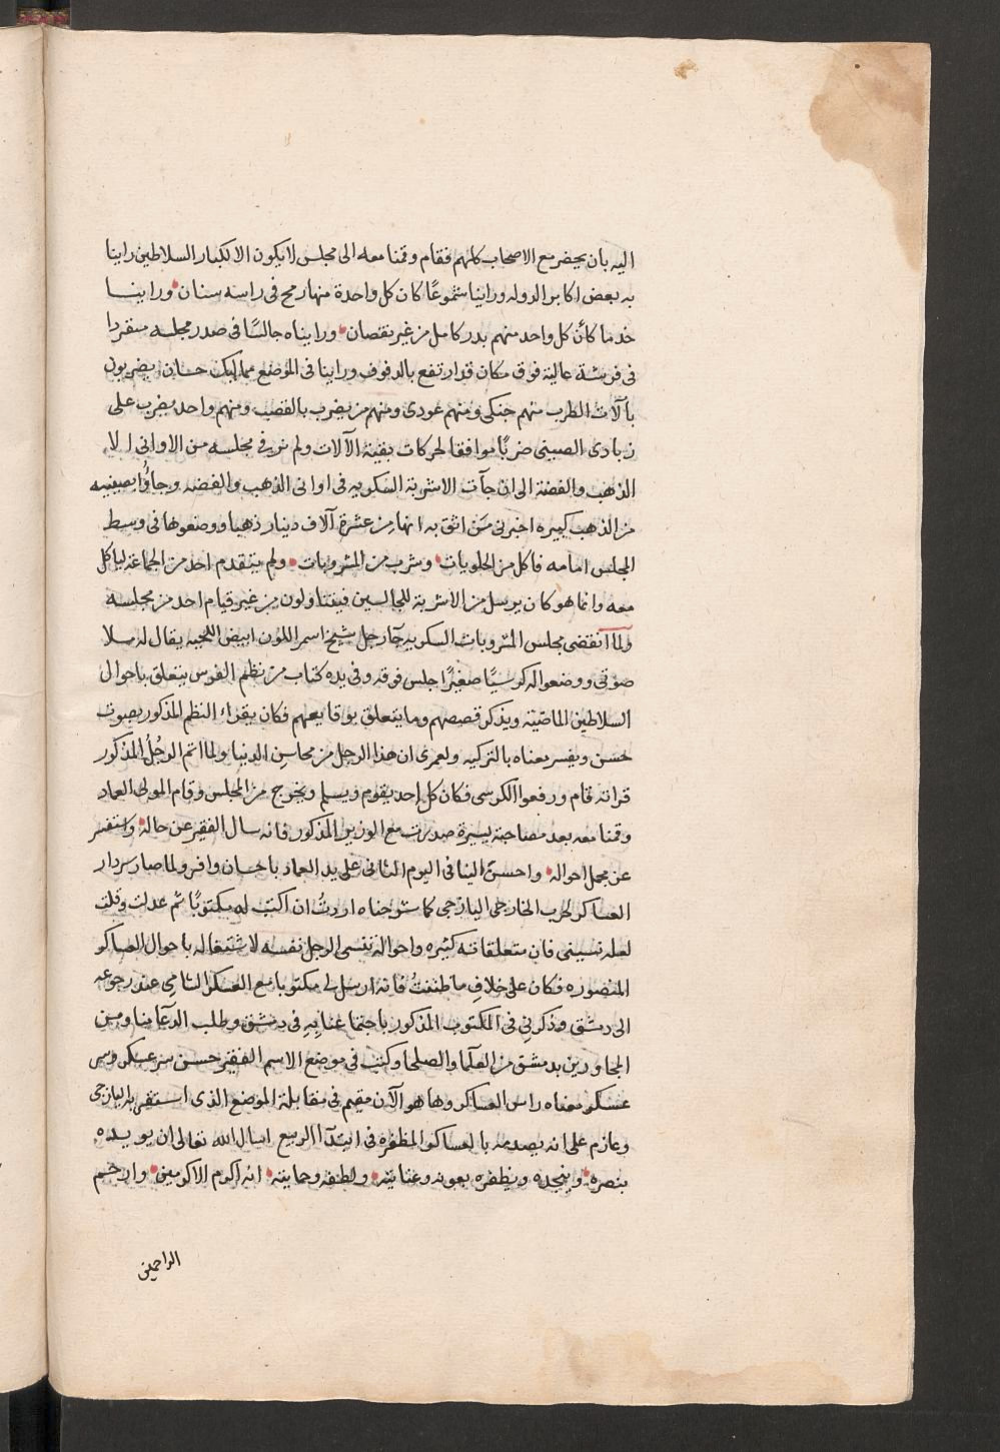 اليه بان يحضر مع الاصحاب كلهم فقام وقمنا معه الى مجلس لا يكون الا لكبار السلاطين راينا
به بعض اكابر الدوله وراينا شموعًا كان كل واحدة منها رمح فى راسه سنان وراينا
خدما كأنّ كل واحد منهم بدر كامل من غير نقصان ورايناه جالسًا فى صدر مجلسه منفردا
فى فرشة عالية فوق مكان قد ارتفع بالدفوف وراينا فى الموضع مماليك حسان يضربون
بآلات الطرب منهم جنكى ومنهم عودى ومنهم من يضرب بالقصب ومنهم واحد يضرب على
زبادى الصينى ضربًا موافقا لحركات بقية الآلات ولم نر فى مجلسه من الاوانى الا
الذهب والفضة الى ان جآت الاشربة السكريه فى اوانى الذهب والفضه وجاؤا بصينيه
من الذهب كبيره اخبرنى من اثق به انها من عشرة آلاف دينار ذهبا ووضعوها فى وسط
المجلس امامه فاكل من الحلويات وشرب من المشروبات ولم يتقدم احد من الجماعة لياكل
معه وانما هو كان يرسل من الاشربة للجالسين فيتناولون من غير قيام احد من مجلسه
ولما انقضى مجلس المشروبات السكريه جآ رجل شيخ اسمر اللون ابيض اللحيه يقال له ملا
صوفى ووضعوا له كرسيًا صغيرًا جلس فوقه وفى يده كتاب من نظم الفرس يتعلق باحوال
السلاطين الماضية ويذكر قصصهم وما يتعلق بوقايعهم فكان يقراء النظم المذكور بصوت
حسن ويفسر معناه بالتركيه ولعمرى ان هذا الرجل من محاسن الدنيا ولما اتم الرجُلُ المذكور
قراته قام ورفعوا الكرسى فكان كل احد يقوم ويسلم ويخرج من المجلس وقام المولى العماد
وقمنا معه بعد مصاحبة يسيرة صدرت مع الوزير المذكور فانه سال الفقير عن حاله واستفسر
عن مجمل احواله واحسن الينا فى اليوم الثانى على يد العماد باحسان وافر ولما صار سردار
العساكر لحرب الخارجى اليازجى كما شرحناه اردتُ ان اكتب له مكتوبًا ثم عدلت وقلت
لعله نسينى فان متعلقاته كثيره واحواله تنسى الرجل نفسه لاشتغاله باحوال العساكر
المنصوره فكان على خلاف ما ظننتُ فانه ارسل لى مكتوبا مع العسكر الشامى عند رجوعه
الى دمشق وذكرنى فى المكتوب المذكور باجتماعنا به فى دمشق وطلب الدعآ منا ومن
المجاورين بدمشق من العلما والصلحا وكتب فى موضع الاسم الفقير حسن سر عسكر وسر
عسكر معناه راس العساكر وها هو الآن مقيم فى مقابلة الموضع الذى استقر به اليازجى
وعازم على انه يصدمه بالعساكر المظفره فى ابتدآ الربيع اسال الله تعالى ان يويده
بنصره وينجده ويظفره بعونه وعنايته ولطفه وحمايته انه اكرم الاكرمين وارحم
الراحمين